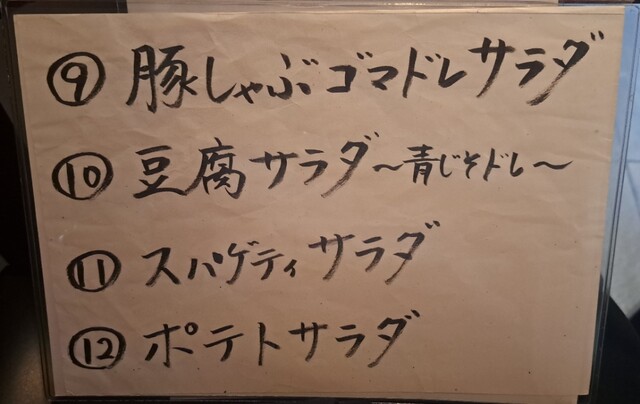 ⑨ 豚しゃぶゴマドレサラダ
⑩ 豆腐サラダ～青じそドレ～
⑪ スパゲティサラダ
⑫ ポテトサラダ